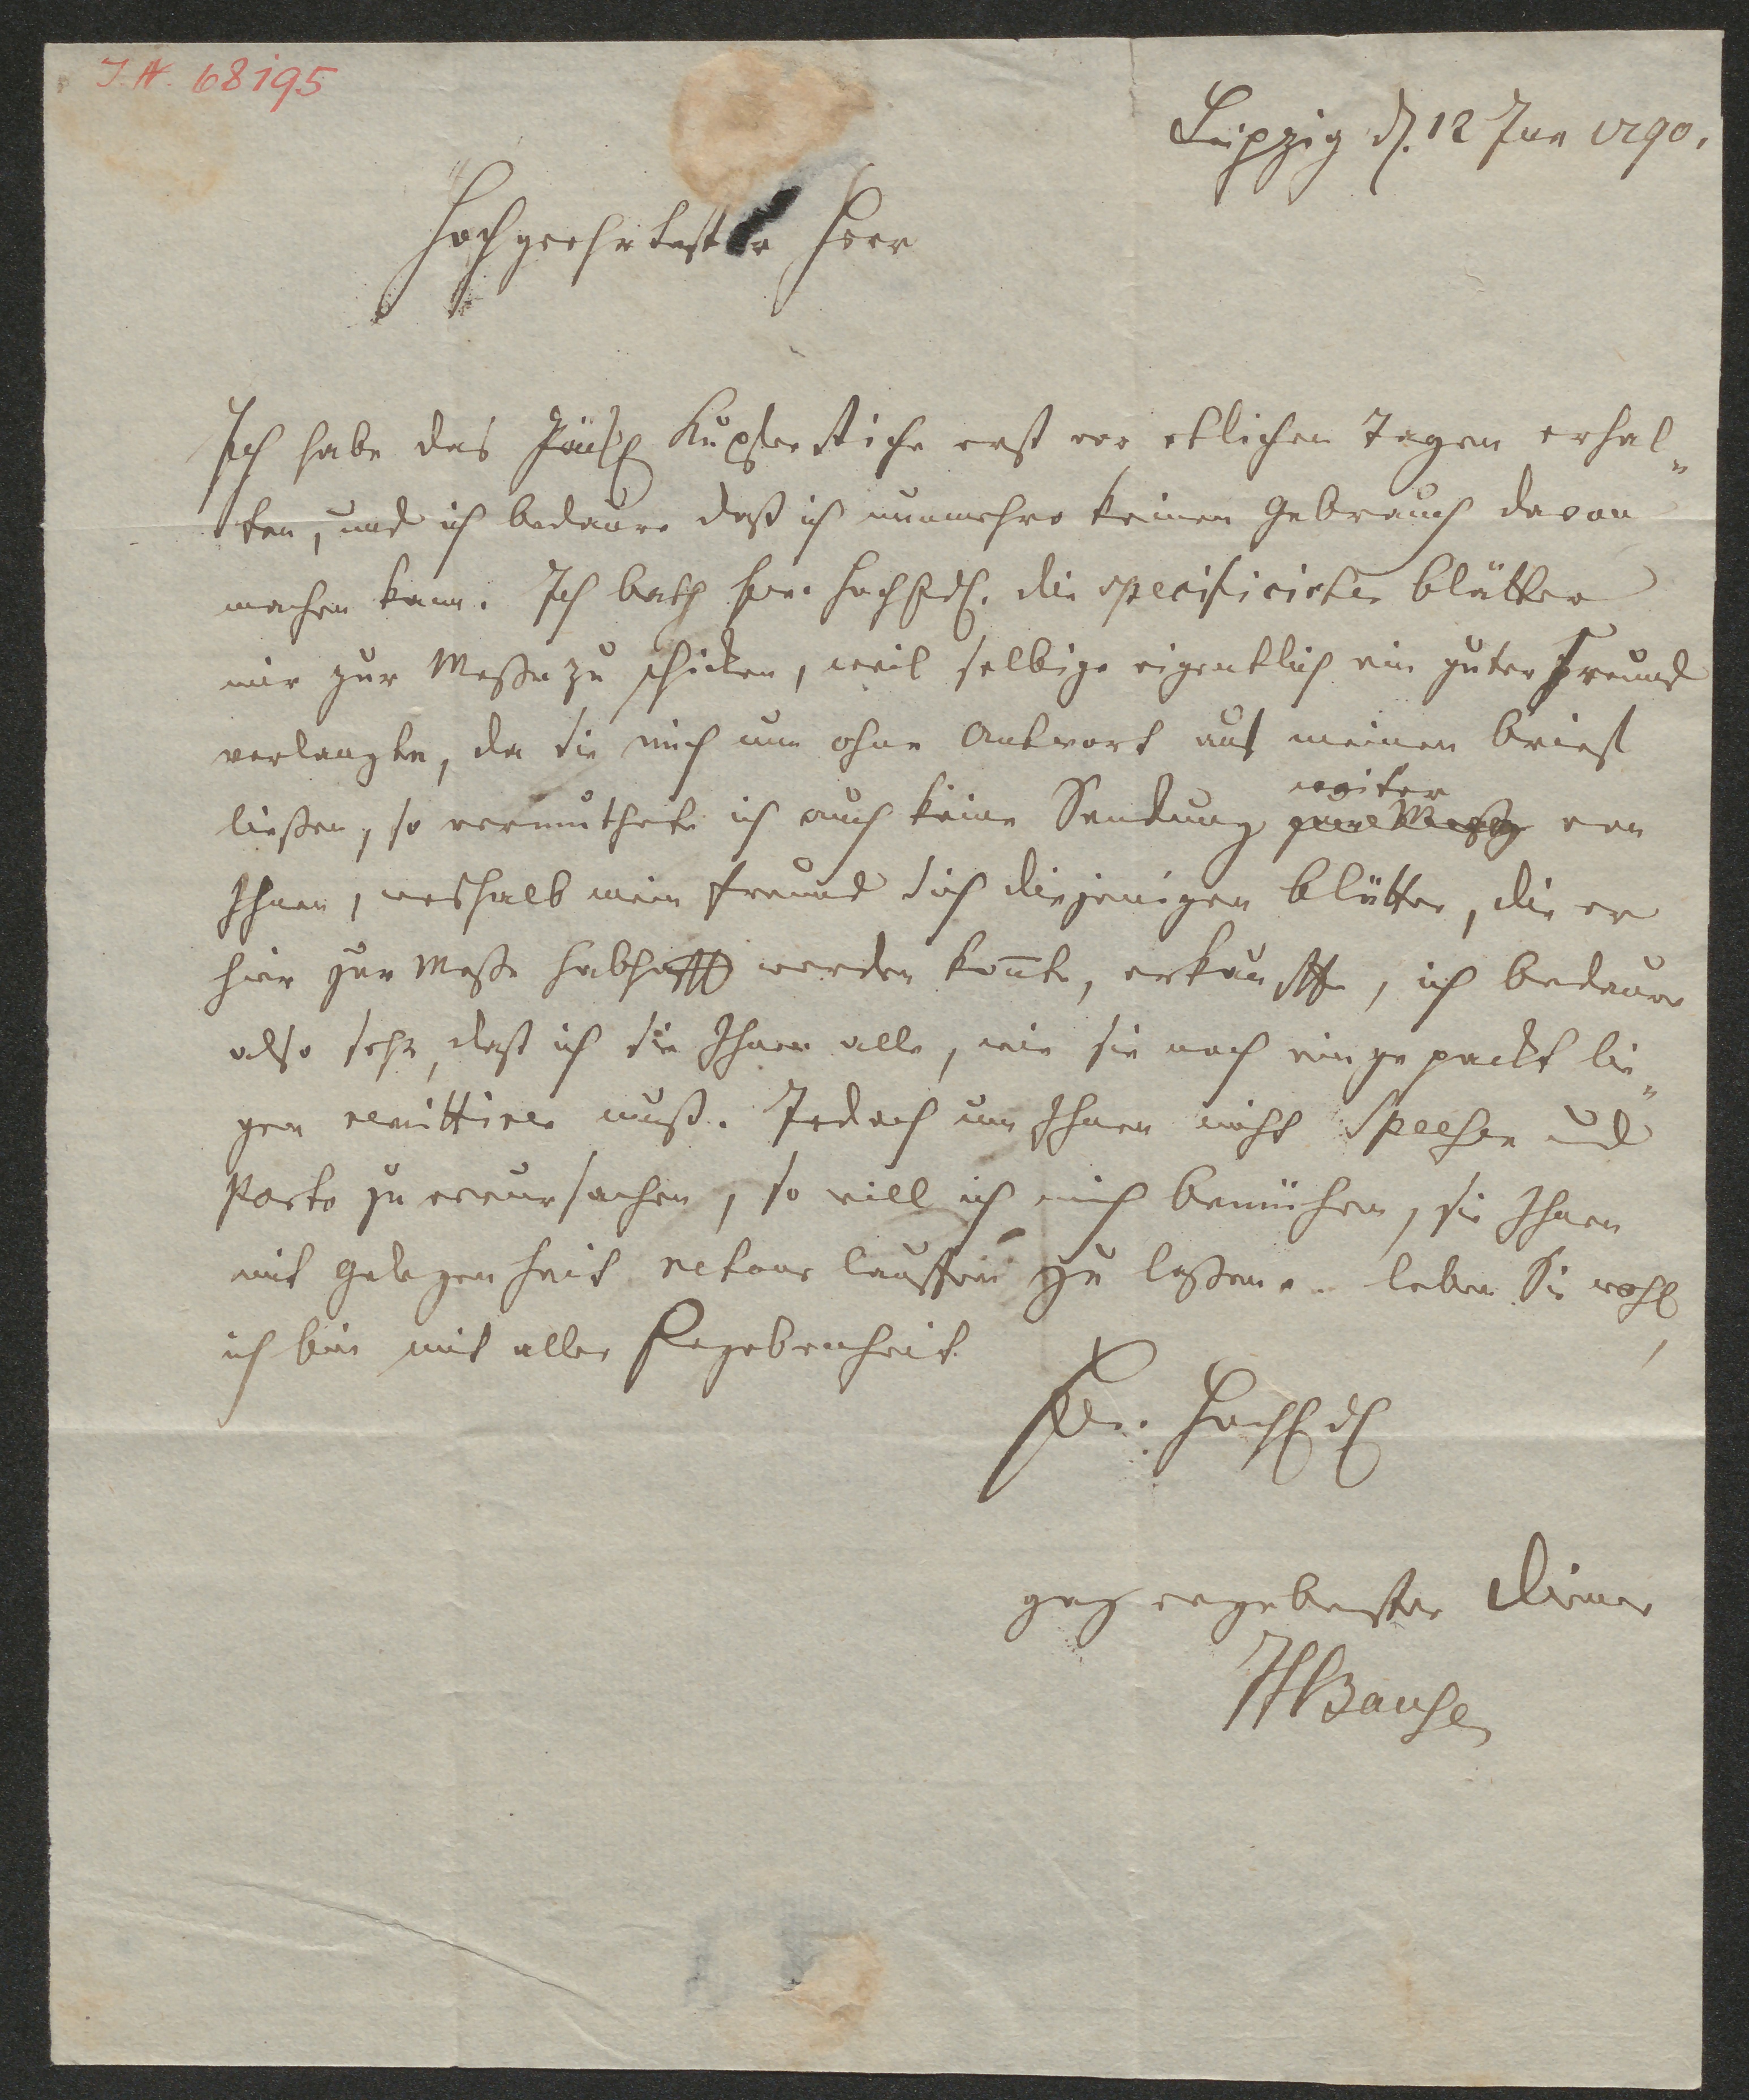 I.N. 68195
Leipzig d. 12 Jun 1790.
Hochgeehrtester Herr
Ich habe das Kupferstiche erst vor etlichen Tagen erhal„
ten, und ich bedaure daß ich nunmehro keinen Gebrauch davon
machen kann. Ich bath Ew. HochEdl. die specificirten Blätter
mir zur Meße zu schicken, weil selbige eigentlich ein guter Freund
verlangte, da Sie mich nun ohne Antwort auf meinen Brief
ließen, so vermuthete ich auch keine Sendung zur Meße weiter von
Ihnen, weshalb mein Freund sich diejenigen Blätter, die er
hier zur Meße habhafft werden konnte, erkaufte, ich bedaure
also sehr, daß ich sie Ihnen alle, wie sie noch eingepackt lie„
gen remittiren muß. Jedoch um Ihnen nicht Speesen und
Porto zu verursachen, so will ich mich bemühen, sie Ihnen
mit Gelegenheit retour lauffen zu laßen. leben Sie wohl,
ich bin mit aller Ergebenheit
Ew. HochEdl
ganz ergebenster Diener
JFBause